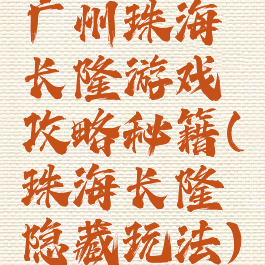 广州珠海
长隆游戏
攻略秘籍(
珠海长隆
隐藏玩法)